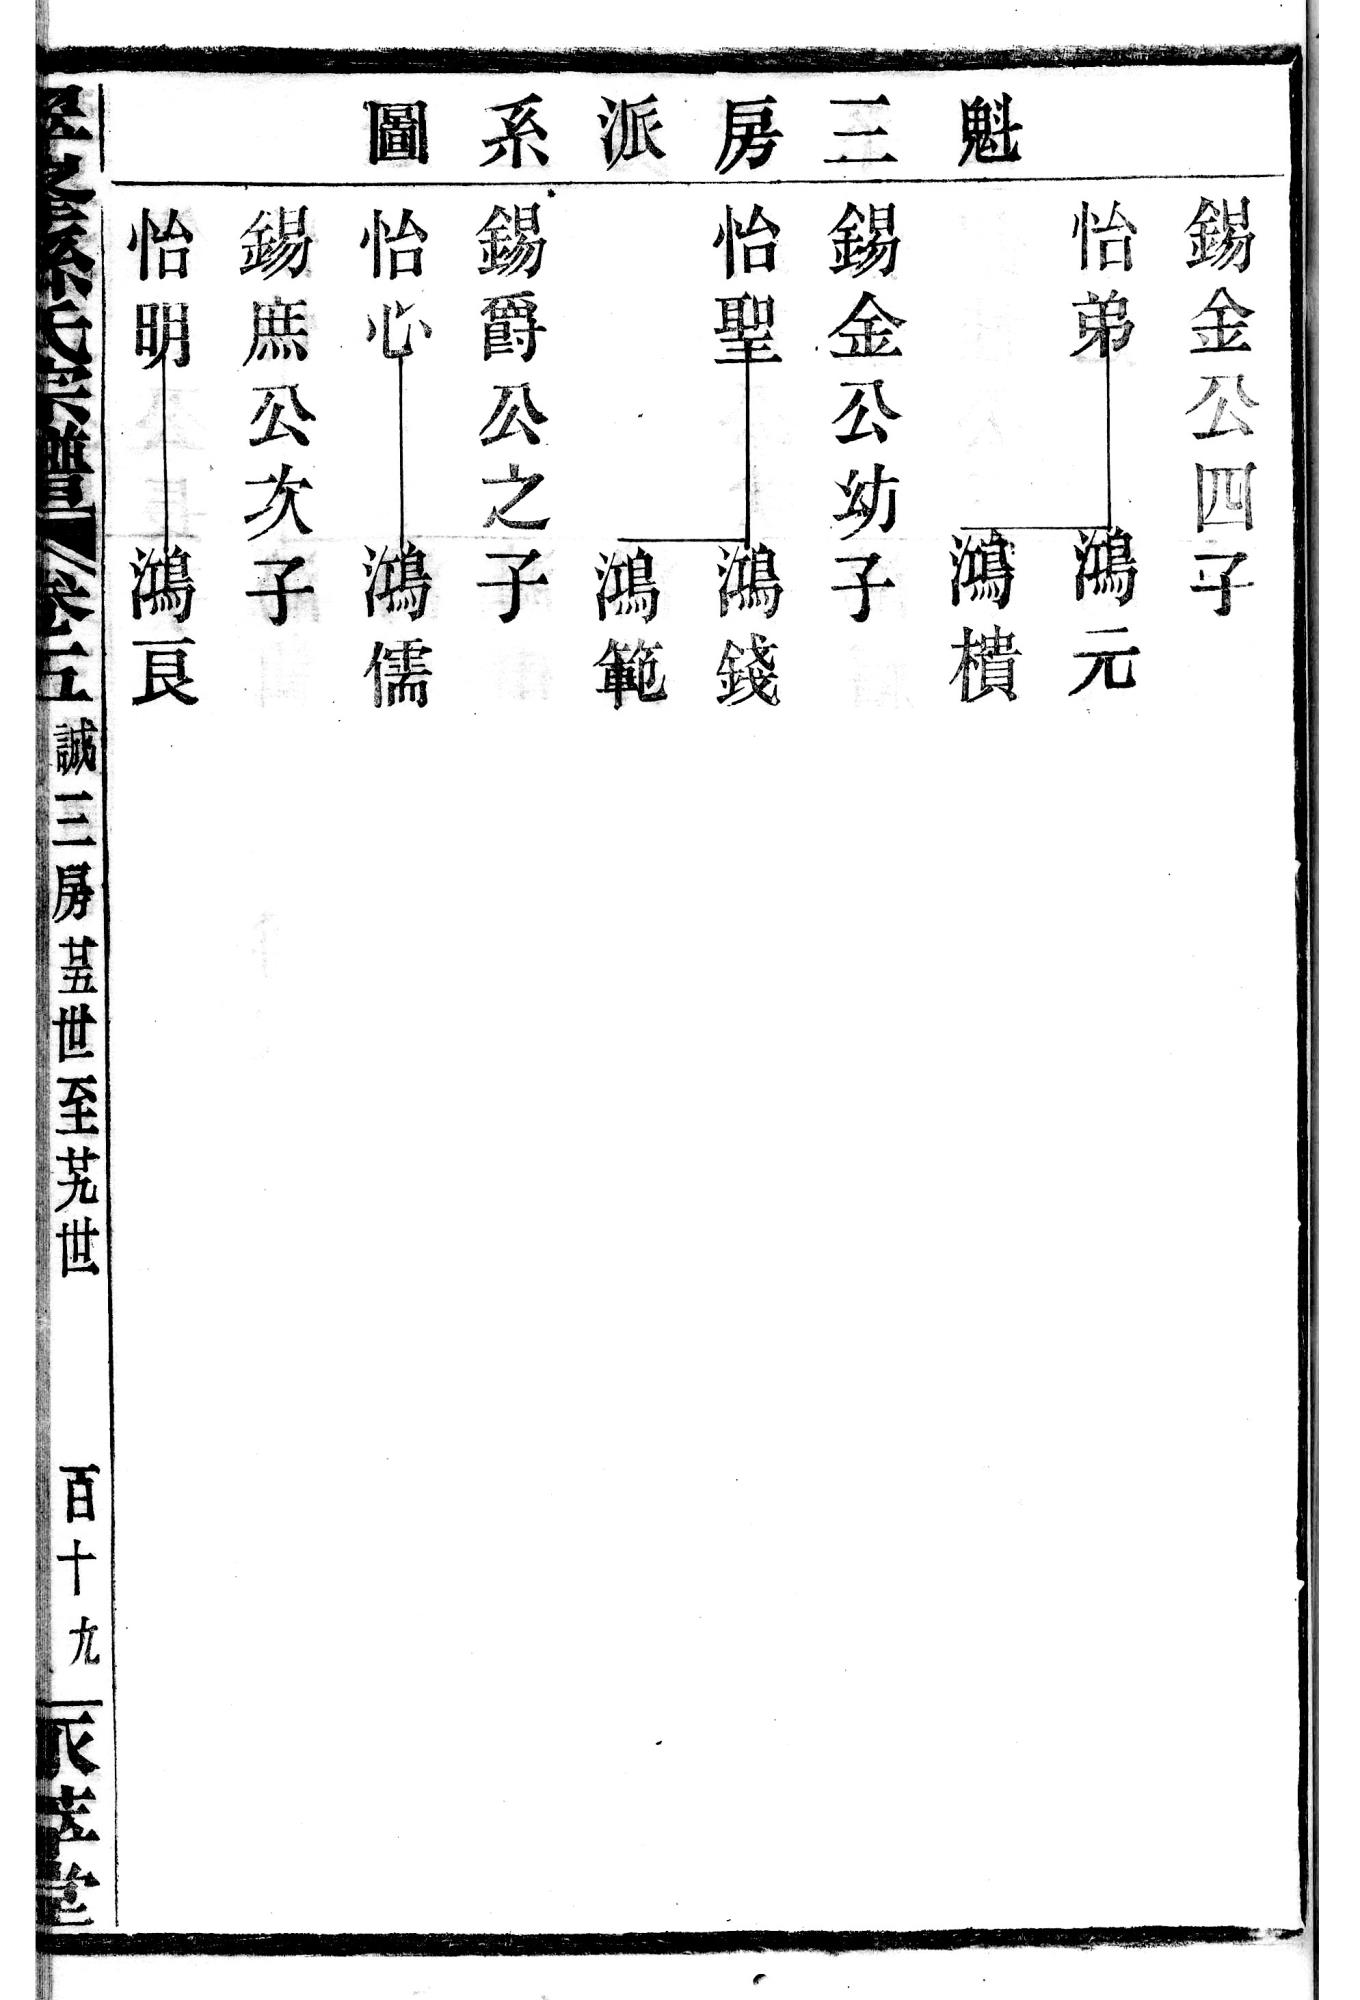 魁三房派系圖
錫金公四子
怡弟
鴻元
鴻樻
錫金公幼子
怡聖
鴻錢
鴻範
錫爵公之子
怡心
鴻儒
錫庶公次子
怡明
鴻艮
氏宗譜 卷五
誠三房 廿五世至廿九世
百十九
堂